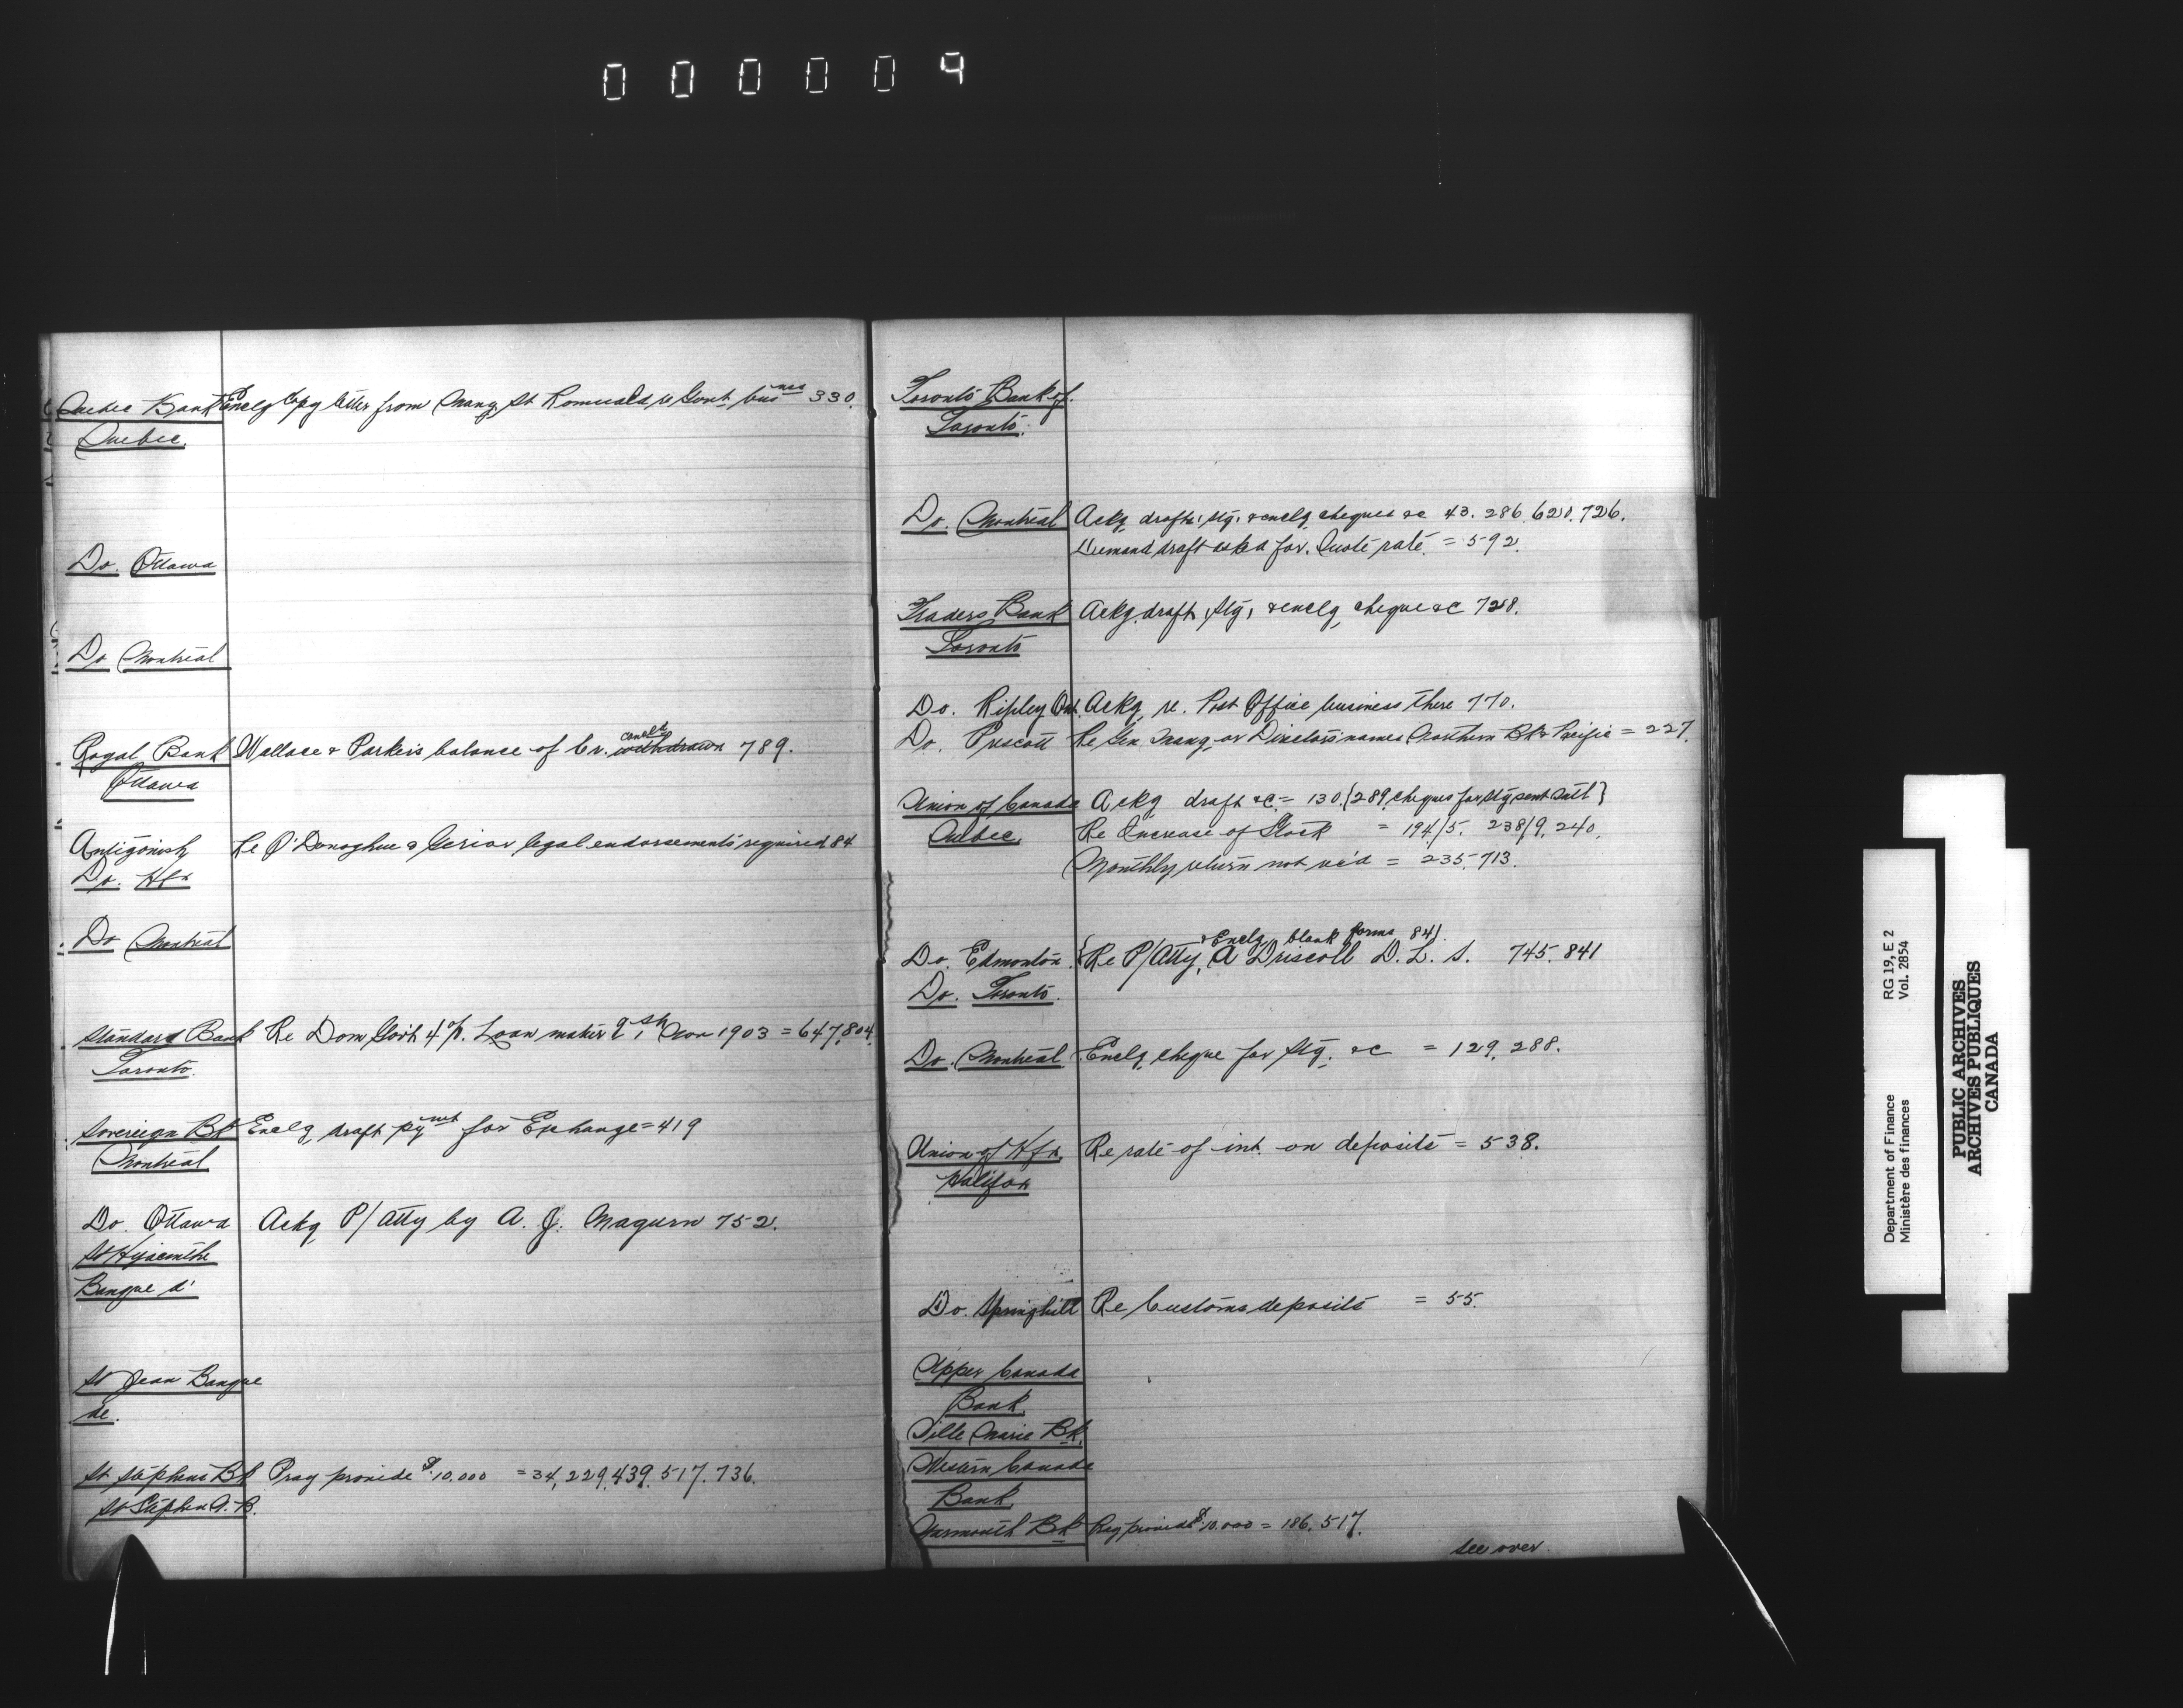 000009
Quebec Bank Enclg Copy letter from Mang. St Romuald re Govt. business 330.
Quebec.
Do. Ottawa
Do Montreal
cancld
Royal Bank Wallace & Parker's balance of Cr. withdrawn 789.
Ottawa
Antigonish Re O'Donoghue & legal endorsements required 84
Do. Hfx
Do Montreal
Standard Bank Re Dom Govt 4%. Loan matur'g 1st Nov 1903 = 647,804.
Toronto.
Sovereign Bk Enclg draft pymt for Exchange = 419
Montreal
Do. Ottawa Ackg P/Atty by A. J. Magurn 752.
St Hyacinthe
Banque d'
St Jean Banque
de.
St Stephens Bk Pray provide $10.000 = 34, 229, 439. 517. 736.
St Stephen N.B.
Toronto Bank of.
Toronto.
Do. Montreal Ackg drafts, stg, & enclg cheques &c 43. 286. 620. 726.
Demand draft asked for. Quote rate = 592.
Traders Bank Ackg draft, stg, & enclg cheque &c 728.
Toronto
Do. Ripley Ont. Ackg re. Post Office business there 770.
Do. Prescott Re Gen Mang. or Directors names Northern Bk & Pacific = 227.
Union of Canada Ackg draft &c = 130. {289. cheques for stg sent Satl}
Quebec. Re Increase of Stock = 194/5. 238/9. 240.
Monthly return not rec'd = 235. 713.
& Enclg blank forms 841.
Do. Edmonton. {Re P/Atty, A Driscoll D. L. S. 745. 841
Do. Toronto.
Do. Montreal Enclg cheque for stg. &c = 129. 288.
Union of Hfx. Re rate of int. on deposits = 538.
Halifax
Do. Springhill Re Customs deposits = 55.
Upper Canada
Bank
Ville Marie Bk.
Western Canada
Bank
Yarmouth Bk Pray provide $10.000 = 186. 517.
see over.
Department of Finance
Ministère des finances
RG 19, E 2
Vol. 2854
PUBLIC ARCHIVES
ARCHIVES PUBLIQUES
CANADA